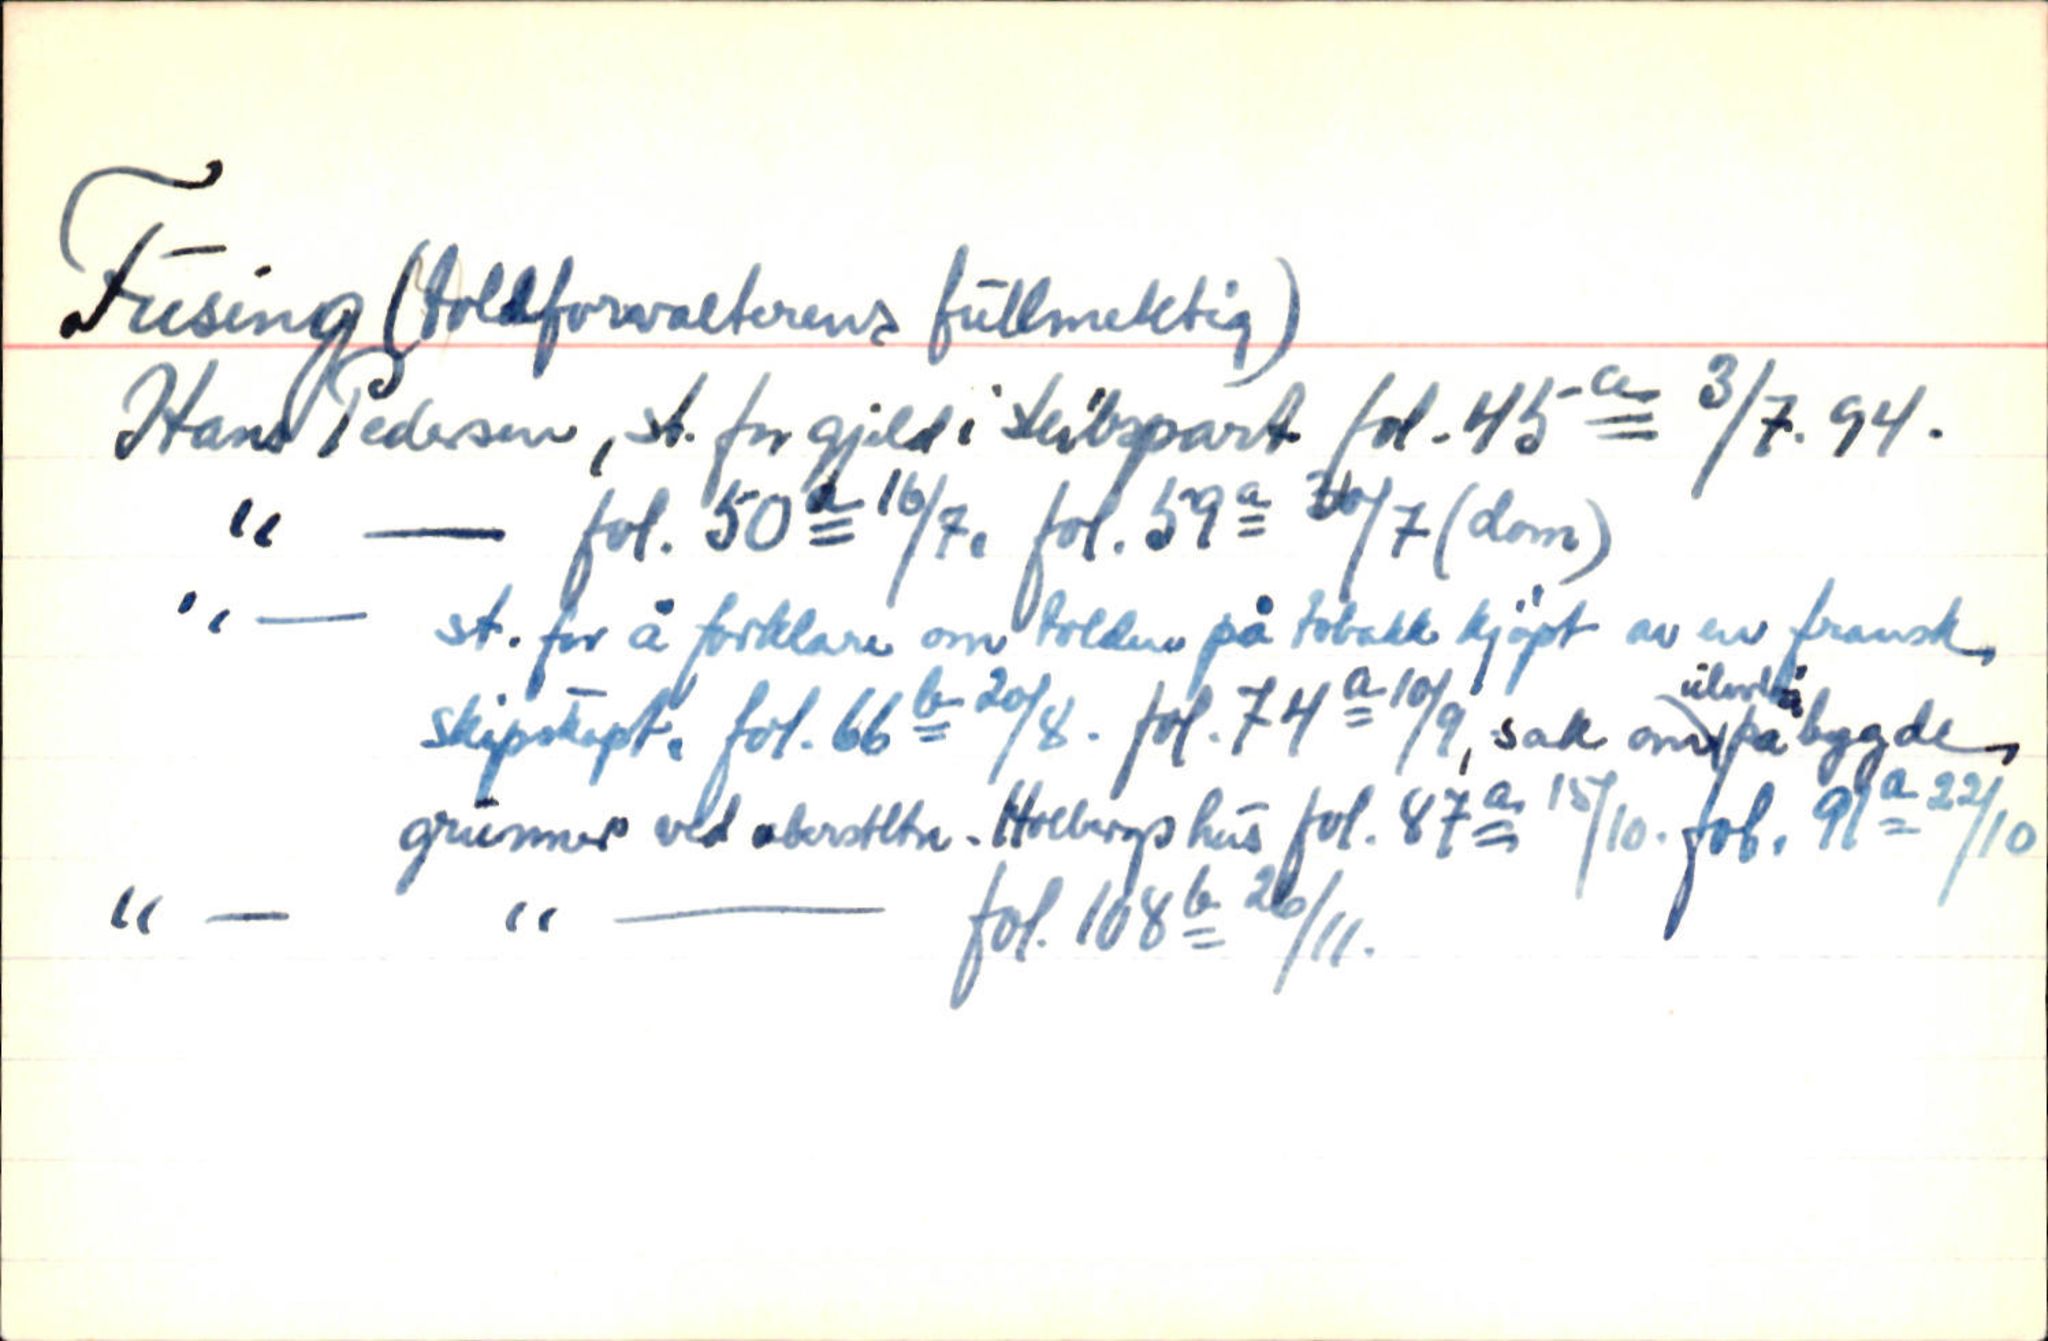 Füsing (toldforvalterens fullmektig)
Hans Pedersen, st. for gjeld i skibspart fol. 45 a 3/7. 94.
" — fol. 50 a 16/7. fol. 59 a 30/7 (dom)
" — st. for å forklare om tolden på tobakk kjöpt av en fransk
skipskapt. fol. 66 b 20/8. fol. 74 a 10/9, sak om på bygde
grunner ved oberstltn. Holbergs hus fol. 87 a 15/10. fol. 91 a 22/10
" — " — fol. 108 b 26/11.